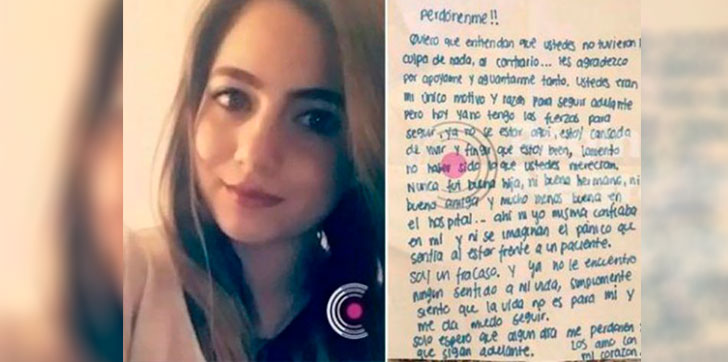 Perdónenme!!
Quiero que entiendan que ustedes no tuvieron
culpa de nada, al contrario... les agradezco
por apoyarme y aguantarme tanto. Ustedes eran
mi único motivo y razón para seguir adelante
pero hoy ya no tengo las fuerzas para
seguir, ya no se estar aquí, estoy cansada
de vivir y fingir que estoy bien, lamento
no haber sido lo que ustedes merecían.
Nunca fui buena hija, ni buena hermana, ni
buena amiga y mucho menos buena en
el hospital... ahí ni yo misma confiaba
en mí y ni se imaginan el pánico que
sentía al estar frente a un paciente.
Soy un fracaso. Y ya no le encuentro
ningún sentido a mi vida, simplemente
siento que la vida no es para mí y
me da miedo seguir.
Solo espero que algun día me perdonen
que sigan adelante. Los amo con
mi corazón